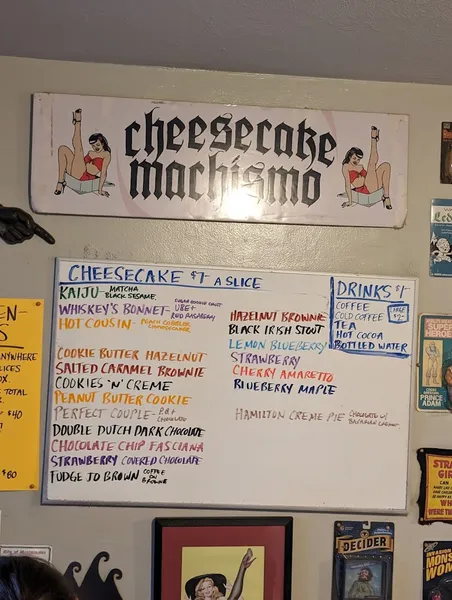 cheesecake
machismo
CHEESECAKE $7- A SLICE
KAIJU- MATCHA
BLACK SESAME
WHISKEY'S BONNET- SUGAR COOKIE CRUST
UBE +
RED RASPBERRY
HOT COUSIN- PEACH COBBLER
COOKIE BUTTER HAZELNUT
SALTED CARAMEL BROWNIE
COOKIES 'N' CREME
PEANUT BUTTER COOKIE
PERFECT COUPLE- PB+
CHOCOLATE
DOUBLE DUTCH DARK CHOCOLATE
CHOCOLATE CHIP FASCIANA
STRAWBERRY COVERED CHOCOLATE
FUDGE JO BROWN COFFEE
ON
BROWNIE
HAZELNUT BROWNIE
BLACK IRISH STOUT
LEMON BLUEBERRY
STRAWBERRY
CHERRY AMARETTO
BLUEBERRY MAPLE
HAMILTON CREME PIE CHOCOLATE w/
BAVARIAN CREAM
DRINKS $1-
COFFEE
COLD COFFEE LARGE
$2-
TEA
HOT COCOA
BOTTLED WATER
EN-
S
ANYWHERE
SLICES
OX.
TOTAL
$40
$60
SUPER
HEROES
PRINCE
ADAM
DECIDER
INVASION
MONS
WO